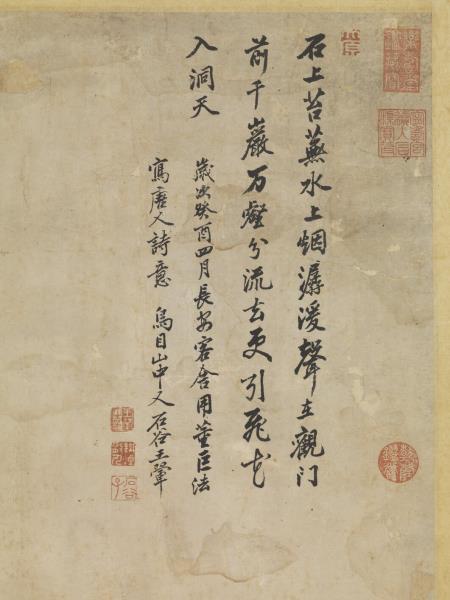 石上苔蕪水上烟潺湲聲在觀门
前千巖万壑分流去更引飛花
入洞天
歲次癸酉四月長安客舍用董巨法
寫唐人詩意 烏目山中人石谷王翬